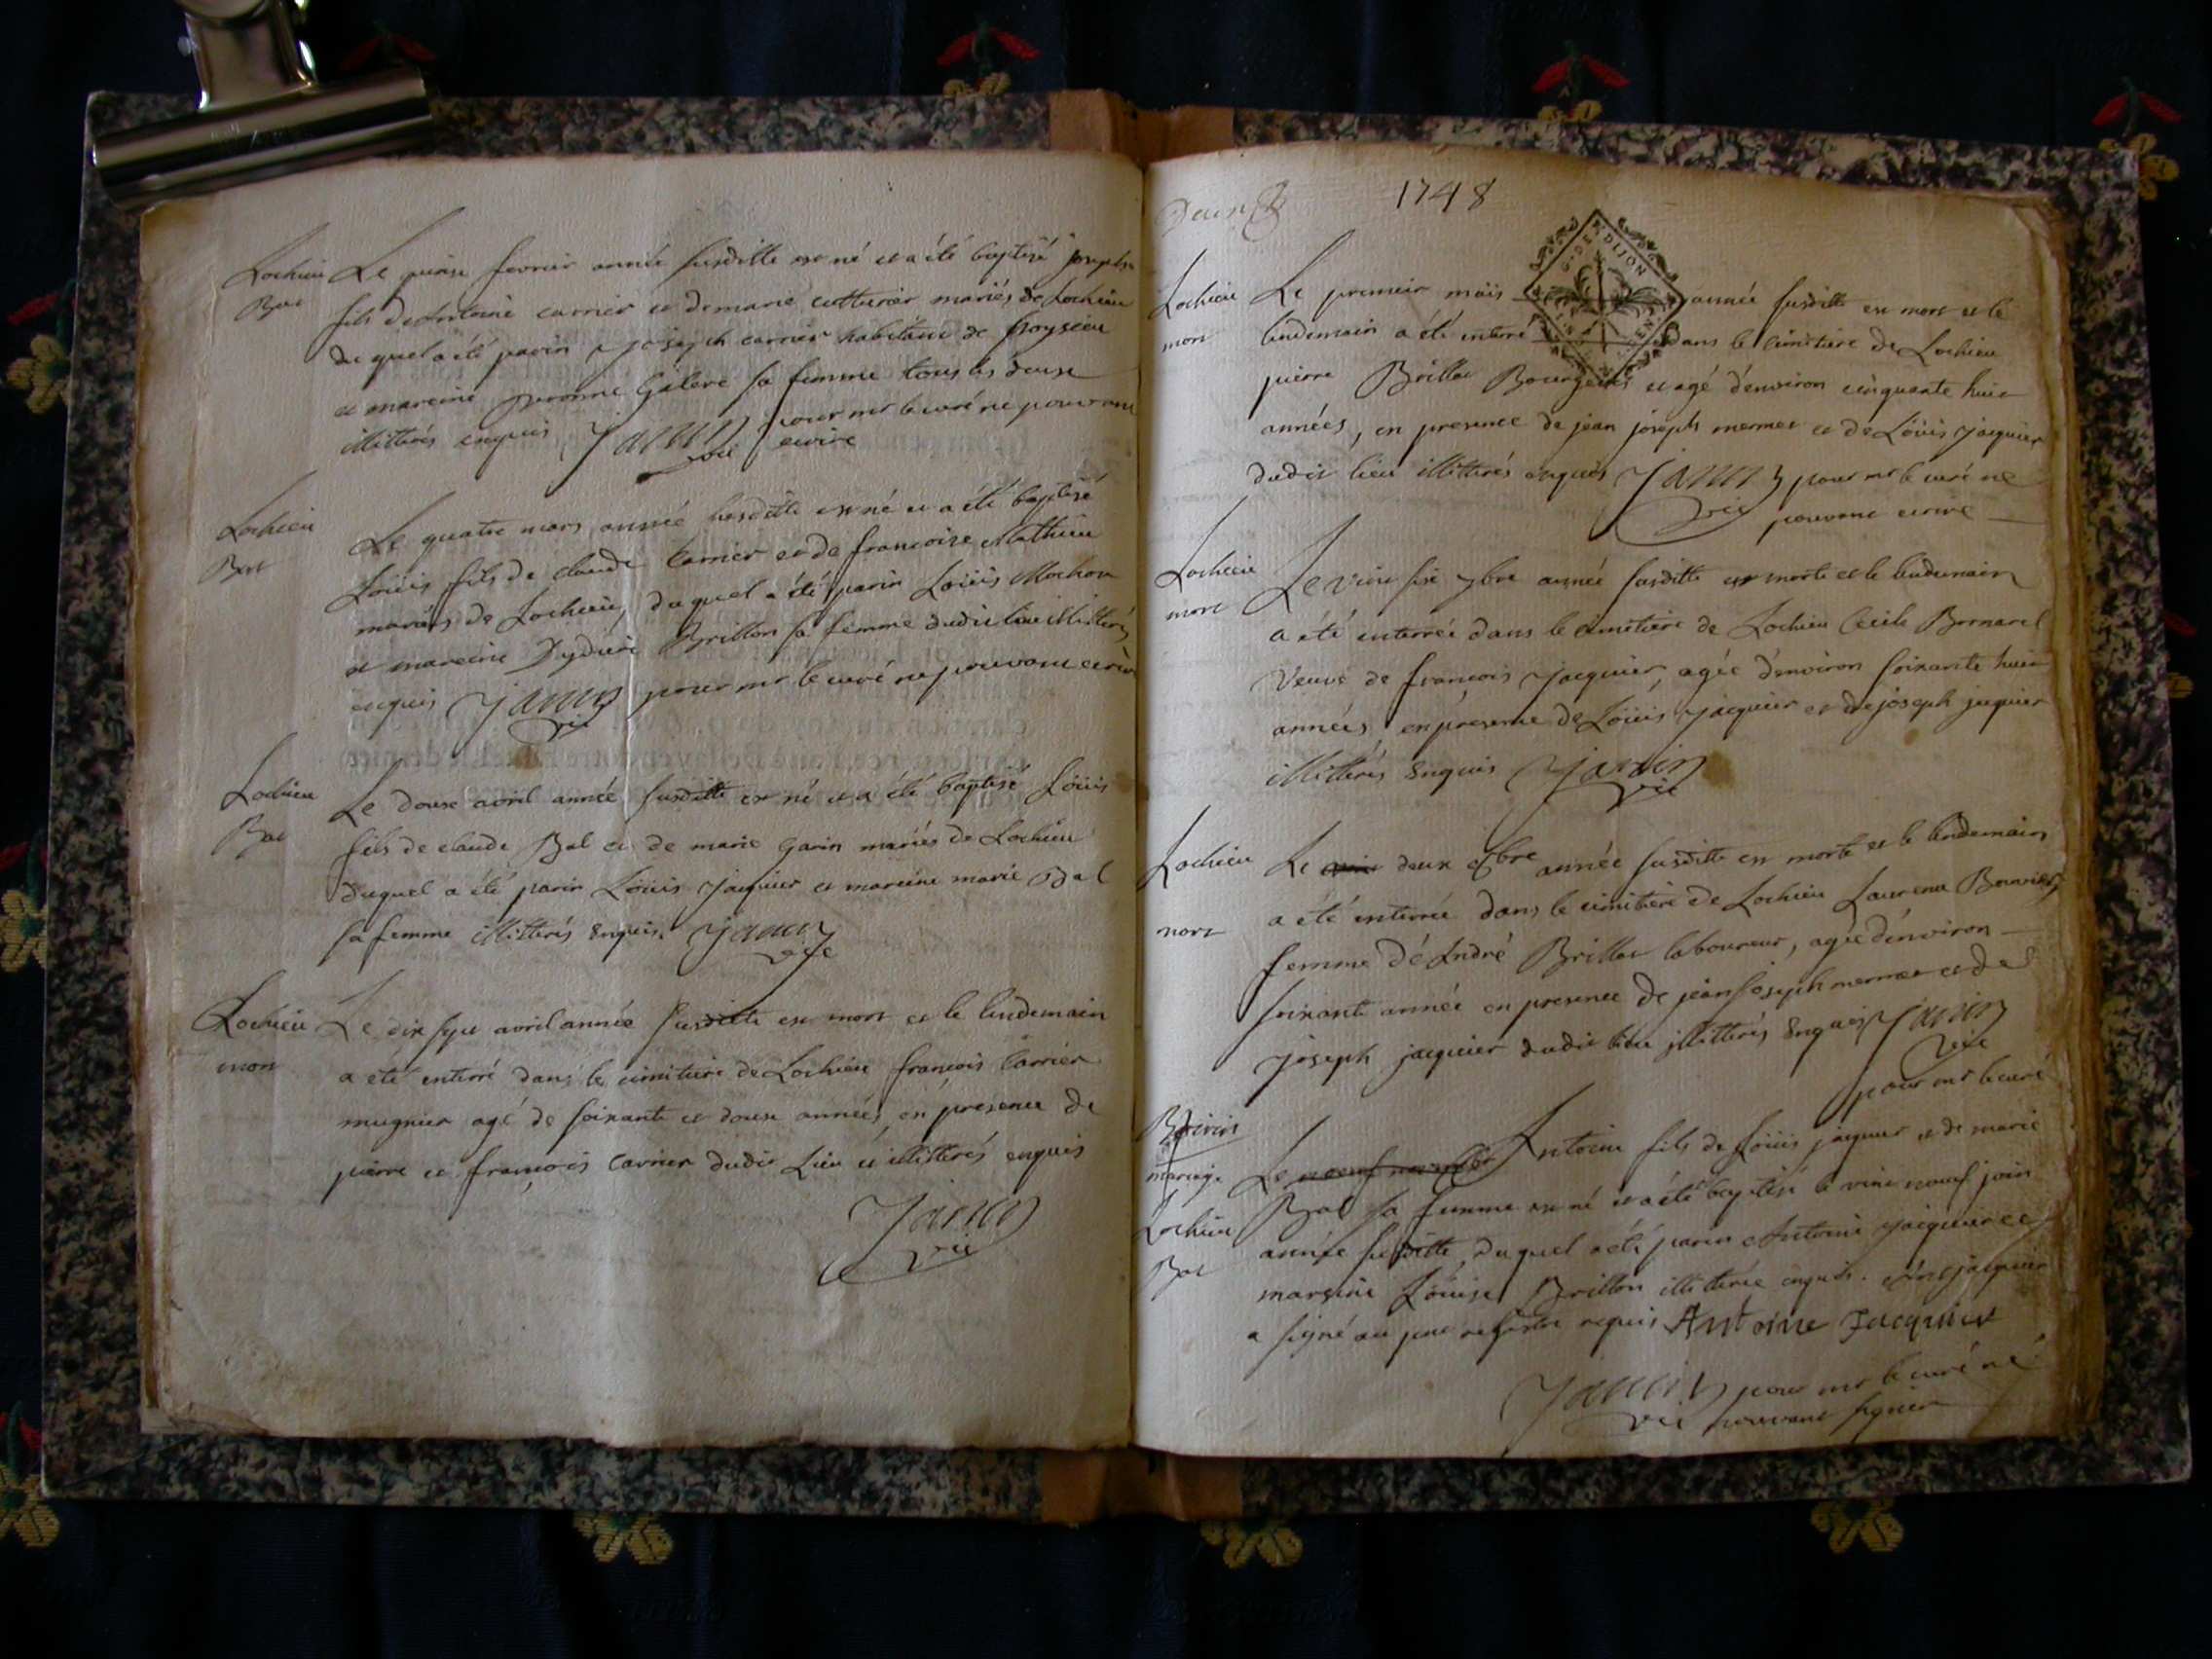 Lochieu Le quinse fevrier année susditte est né et a été baptisé joseph
Bat fils de Antoine carrier et de marie cutturier mariés de Lochieu
du quel a été parin joseph carrier habitant de
et mareine sa femme tous les deux
illitterés enquis Janin pour mr le curé ne pouvant
vic ecrire
Lochieu Le quatre mars année susditte est né et a été baptisé
Bat Loüis fils de claude Carrier et de francoise Mathieu
mariés de Lochieu, duquel a été parin Loüis Mochon
et mareine Brillon sa femme dudit lieu illitterés
enquis Janin pour mr le curé ne pouvant ecrire
vic
Lochieu Le douse avril année susditte est né et a été baptisé Loüis
Bat fils de claude Bal et de marie Garin mariés de Lochieu
duquel a été parin Loüis Jacquier et mareine marie Bal
sa femme illitterés enquis. Janin
vic
Lochieu Le dix sept avril année susditte est mort et le lindemain
mort a été enterré dans le cimitiere de Lochieu francois Carrier
mugnier agé de soixante et douse années, en presence de
pierre et francois Carrier dudit Lieu et illitterés enquis
Janin
vic
1748
G. DE DIJON
Lochieu Le premier mais année susditte est mort et le
mort lindemain a été enterré dans le cimitiere de Lochieu
pierre Brillat Bourgeois et agé d'environ cinquante huit
années, en presence de jean joseph mermet et de Loüis jacquier
dudit lieu illitterés enquis Janin pour mr le curé ne
vic pouvant ecrire
Lochieu Le vint six 7bre année susditte est morte et le lindemain
mort a été enterrée dans le cimetiere de Lochieu Cecile Bornarel
Veuve de francois Jacquier, agée d'environ soixante huit
années, en presence de Loüis Jacquier et de joseph jaquier
illitterés enquis Janin
vic
Lochieu Le deux année susditte est morte et le lindemain
mort a été enterrée dans le cimitiere de Lochieu Laurence
femme d'André Brillat laboureur, agée d'environ
soixante année en presence de jean joseph mermet et de
joseph jacquier dudit lieu illitterés enquis Janin
vic
pour mr le curé
mariage Le Antoine fils de Loüis jaquier et de marie
Lochieu Bal sa femme est né et a été baptisé le vint neuf juin
Bat année susditte, duquel a été parin Antoine Jacquier et
mareine Loüise Brillon illitterée enquis. Antoine jacquier
a signé au registre requis Antoine Jacquier
Janin pour mr le curé ne
vic pouvant signer